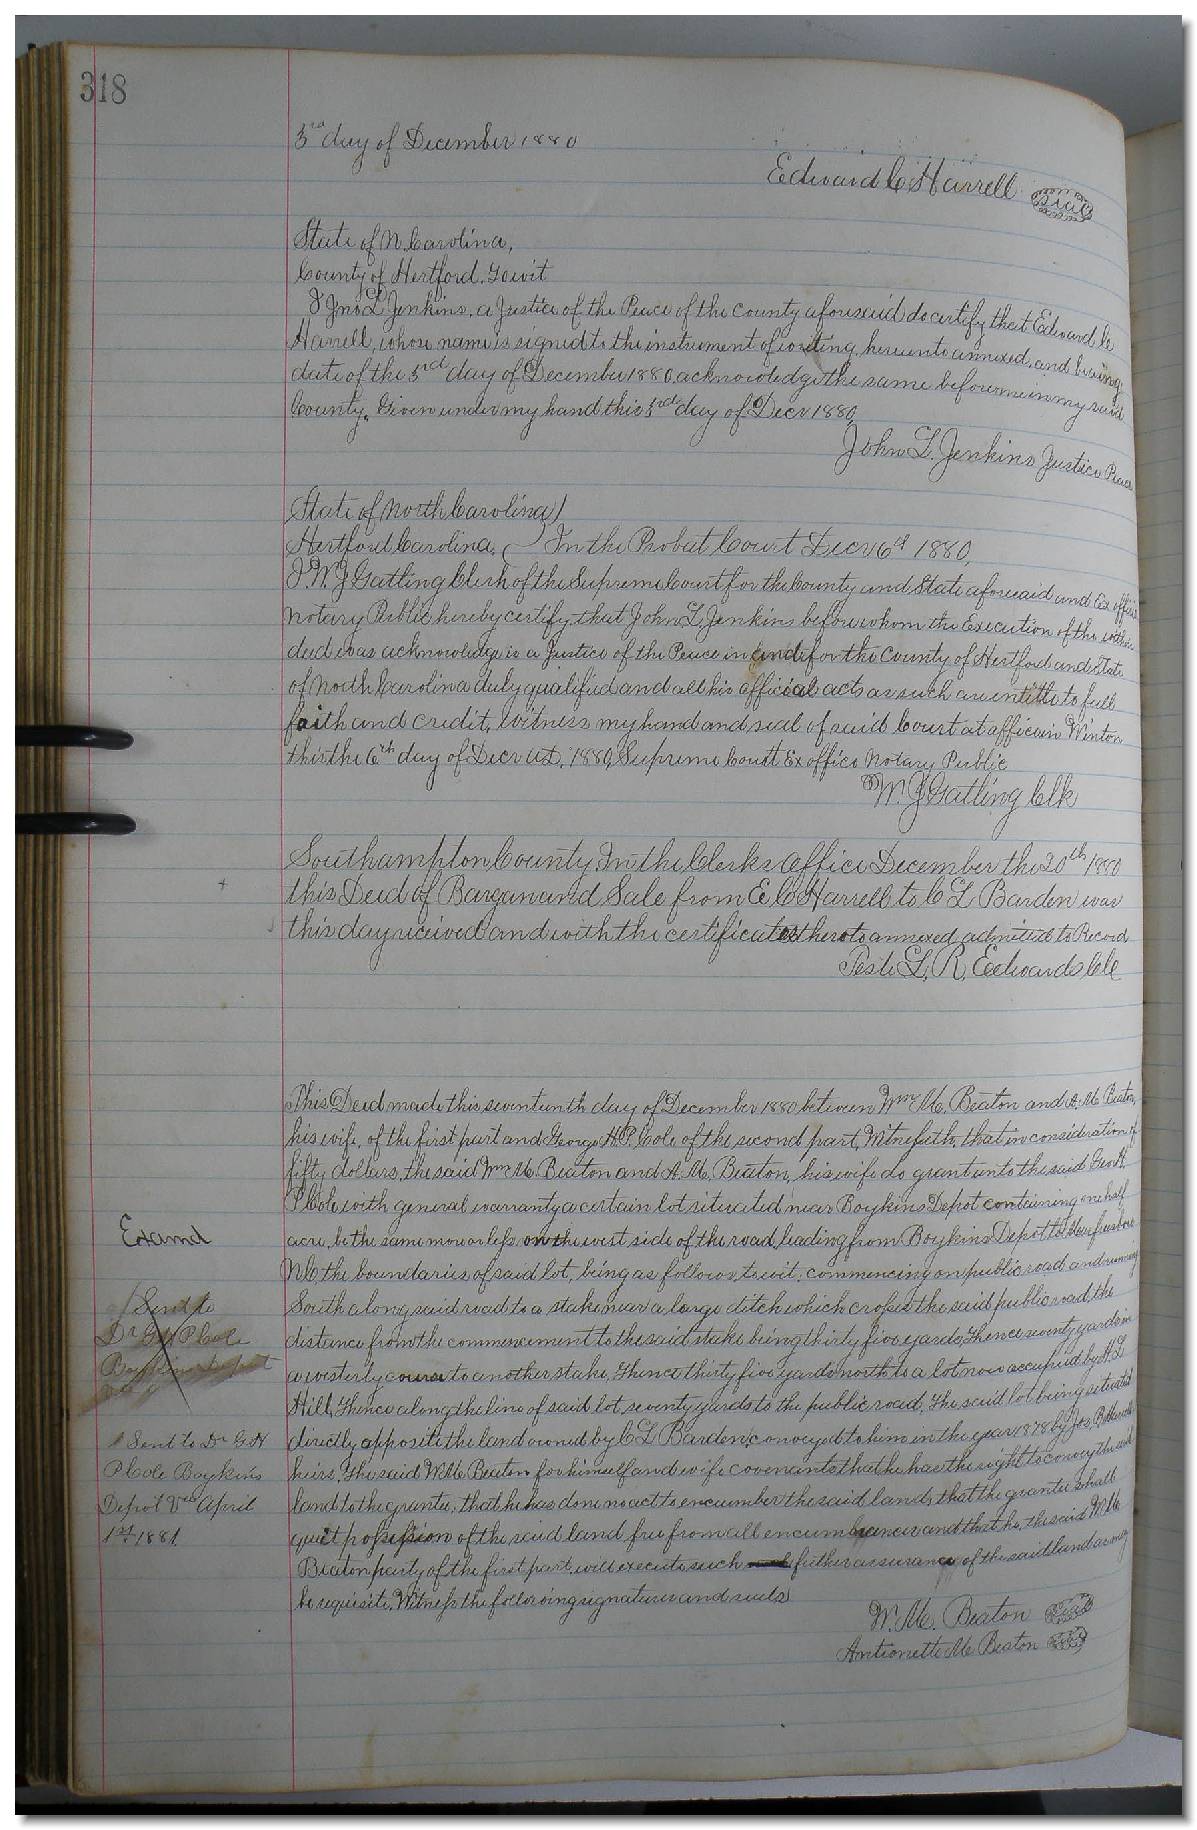 318
3rd day of December 1880
Edward C Harrell Seal
State of N. Carolina,
County of Hertford, Towit
I Jno L Jenkins, a Justice of the Peace of the County aforesaid do certify that Edward C
Harrell, whose name is signed to the instrument of writing, hereunto annexed, and bearing
date of the 3rd day of December 1880, acknowledge the same before me in my said
County. Given under my hand this 3rd day of Decr 1880
John L. Jenkins Justice Peace
State of North Carolina)
Hertford Carolina, ( In the Probat Court Decr 6th 1880,
I, W J Gatling Clerk of the Supreme Court for the County and State aforesaid and Ex officio
Notary Public, hereby certify that John L, Jenkins before whom the Execution of the within
deed was acknowledge is a Justice of the Peace in and for the County of Hertford and State
of North Carolina duly qualified and all his official acts as such are entitle to full
faith and credit, Witness my hand and seal of said Court at office in Winton
this the 6th day of Decr A.D. 1880, Supreme Court Ex office Notary Public
W. J Gatling Clk
Southampton County, In the Clerks Office December the 20th 1880
this Deed of Bargun and Sale from E C Harrell to C L Barden was
this day received and with the certificates thereto annexed admitted to Record
Teste L, R, Edwards Clk
This Deed made this seventeenth day of December 1880 between Wm M. Beaton and A. M Beaton,
his wife, of the first part and George H P. Cole of the second part, Witnesseth, that in consideration of
fifty dollars, the said Wm M Beaton and A. M. Beaton, his wife do grant unto the said Geo H.
P Cole with general warranty a certain lot situated near Boykins Depot containing one half
acre, be the same more or less on the west side of the road, leading from Boykins Depot to Murfreesboro
N.C. the boundaries of said lot, being as follows, towit, commencing on public road and running
South along said road to a stake near a large ditch which crosses the said public road, the
distance from the commencement to the said stake being thirty five yards, thence seventy yards in
a westerly course to another stake, thence thirty five yards north to a lot now occupied by H. L
Hill, thence along the line of said lot, seventy yards to the public road, The said lot being situated
directly opposite the land owned by C L Barden, conveyed to him in the year 1878 by Jos,
heirs, The said W. M Beaton for himself and wife covenants that he has the right to convey the said
land to the grantee; that he has done no act to encumber the said lands, that the grantee shall
quiet possession of the said land free from all encumbrances and that he, the said W. M
Beaton party of the first part, will execute such further assurance of the said land as may
be requisite. Witness the following signatures and seals
W. M. Beaton Seal
Antionette M Beaton Seal
Examd
Sent to
Dr G H P Cole
Boykins Depot
Sent to Dr G. H
P Cole Boykins
Depot Va April
1st 1881